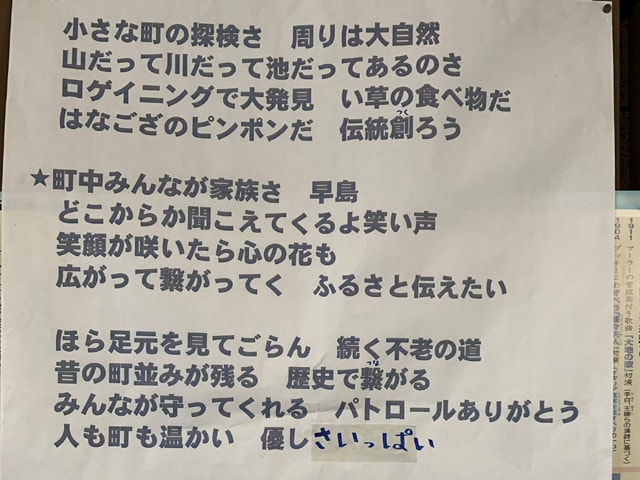 小さな町の探検さ　周りは大自然
山だって川だって池だってあるのさ
ロゲイニングで大発見　い草の食べ物だ
はなござのピンポンだ　伝統創ろう
つく
★町中みんなが家族さ　早島
どこからか聞こえてくるよ笑い声
笑顔が咲いたら心の花も
広がって繋がってく　ふるさと伝えたい
ほら足元を見てごらん　続く不老の道
昔の町並みが残る　歴史で繋がる
つな
みんなが守ってくれる　パトロールありがとう
人も町も温かい　優しさいっぱい
1911
1904